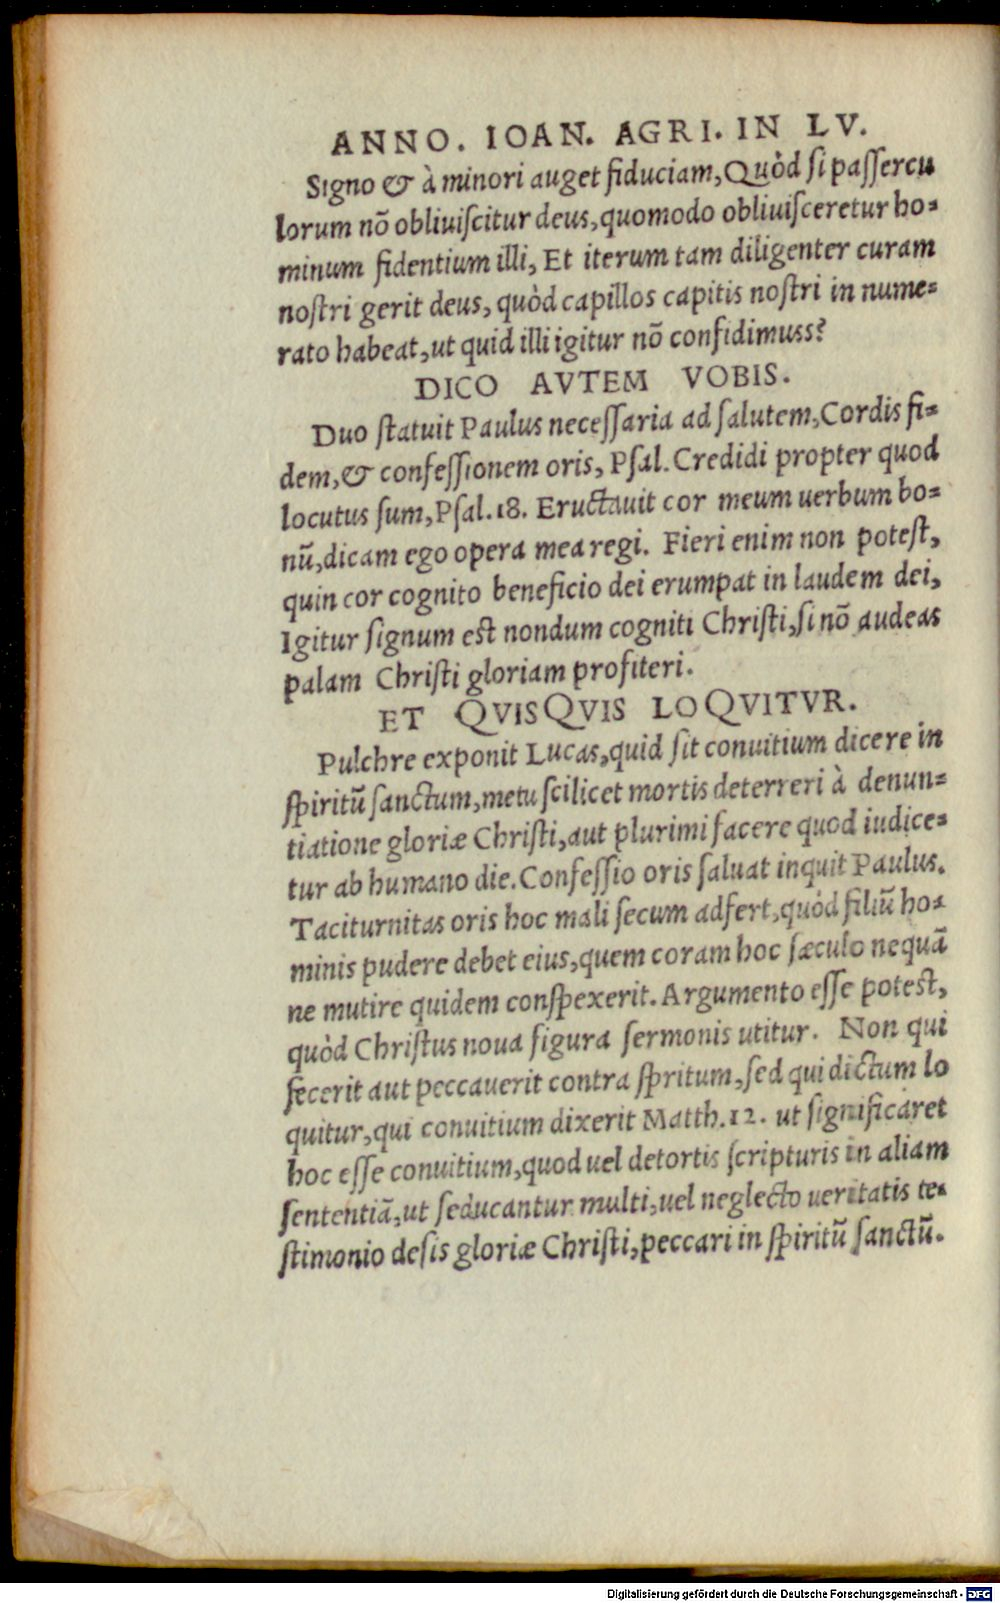 ANNO. IOAN. AGRI. IN LV.
Signo & à minori auget fiduciam, Quòd si paſſercu
lorum nō obliuiſcitur deus, quomodo obliuiſceretur ho=
minum fidentium illi, Et iterum tam diligenter curam
noſtri gerit deus, quòd capillos capitis noſtri in nume=
rato habeat, ut quid illi igitur nō confidimuss?
DICO AVTEM VOBIS.
Duo ſtatuit Paulus neceſſaria ad ſalutem, Cordis fi=
dem, & confeſſionem oris, Pſal. Credidi propter quod
locutus ſum, Pſal. 18. Eructauit cor meum uerbum bo=
nū, dicam ego opera mea regi. Fieri enim non poteſt,
quin cor cognito beneficio dei erumpat in laudem dei,
Igitur ſignum est nondum cogniti Chriſti, ſi nō audeas
palam Chriſti gloriam profiteri.
ET QVISQVIS LOQVITVR.
Pulchre exponit Lucas, quid ſit conuitium dicere in
ſpiritū ſanctum, metu ſcilicet mortis deterreri à denun=
tiatione gloriæ Chriſti, aut plurimi facere quod iudice=
tur ab humano die. Confeſſio oris ſaluat inquit Paulus.
Taciturnitas oris hoc mali ſecum adfert, quòd filiū ho=
minis pudere debet eius, quem coram hoc ſæculo nequā
ne mutire quidem conſpexerit. Argumento eſſe poteſt,
quòd Chriſtus noua figura ſermonis utitur. Non qui
fecerit aut peccauerit contra ſpritum, ſed qui dictum lo
quitur, qui conuitium dixerit Matth. 12. ut ſignificaret
hoc eſſe conuitium, quod uel detortis ſcripturis in aliam
ſententiā, ut ſeducantur multi, uel neglecto ueritatis te=
ſtimonio deſis gloriæ Chriſti, peccari in ſpiritū ſanctū.
Digitalisierung gefördert durch die Deutsche Forschungsgemeinschaft - DFG